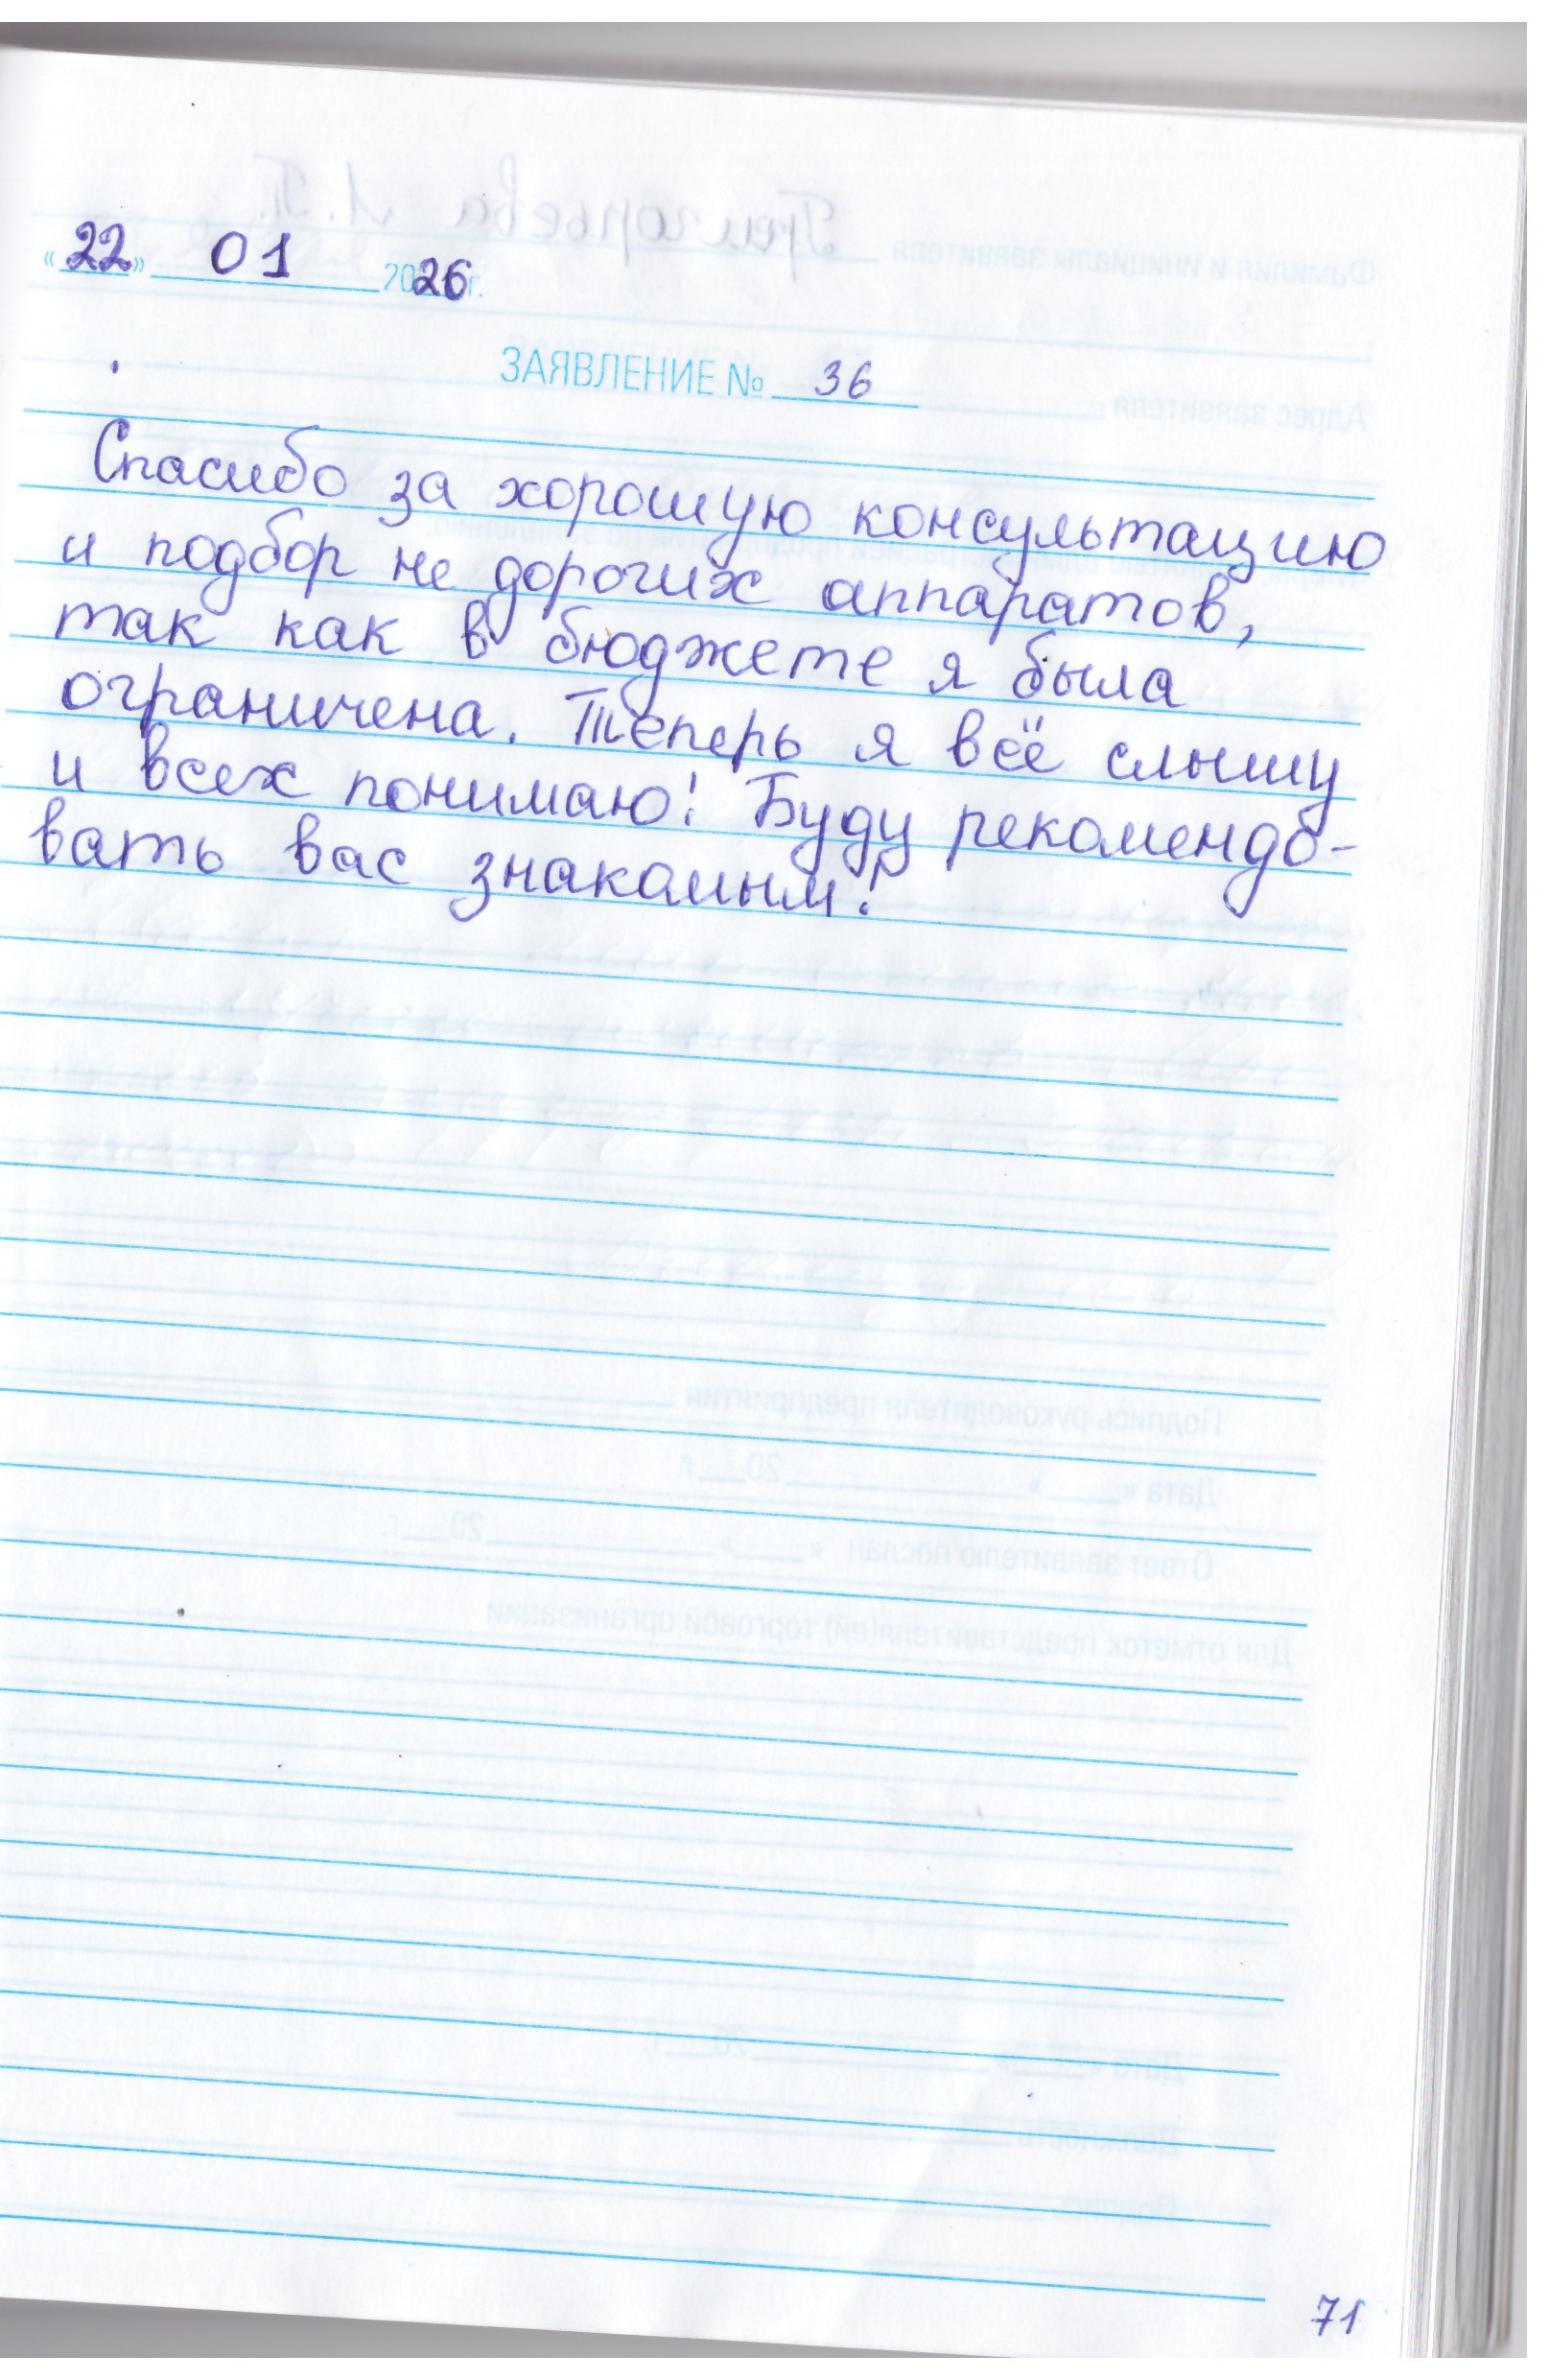 «22» 01 2026 г.
ЗАЯВЛЕНИЕ № 36
Спасибо за хорошую консультацию
и подбор не дорогих аппаратов,
так как в бюджете я была
ограничена. Теперь я всё слышу
и всех понимаю! Буду рекомендо-
вать вас знакомым!
71